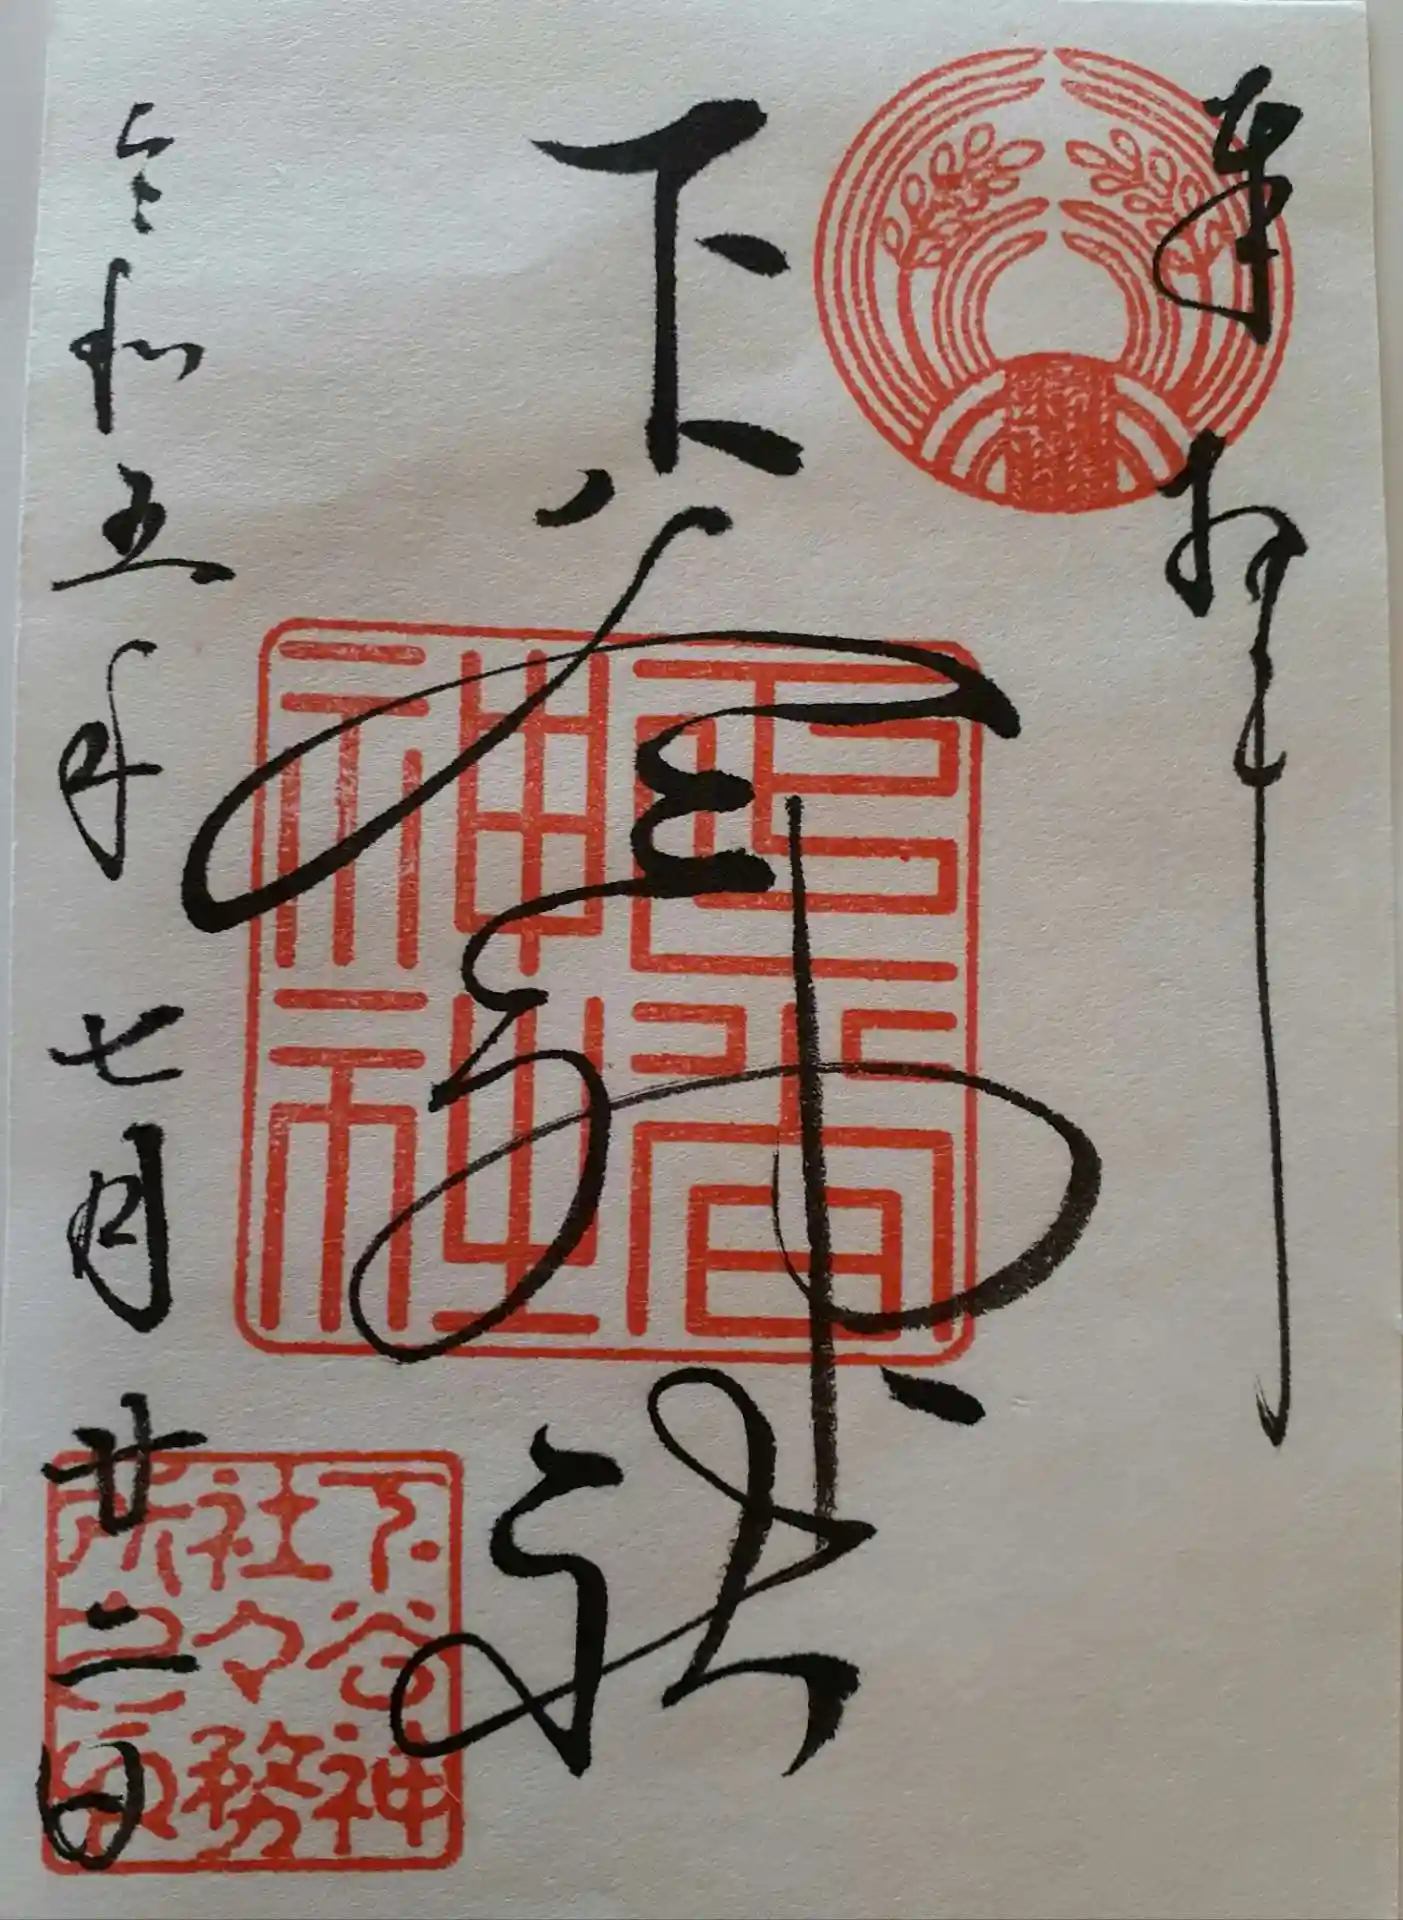 奉拝
下谷神社
神社
令和五年七月廿二日
下谷神
社々務
所之印